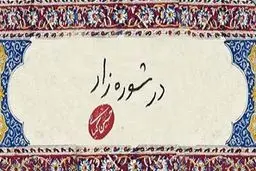 در شوره زار